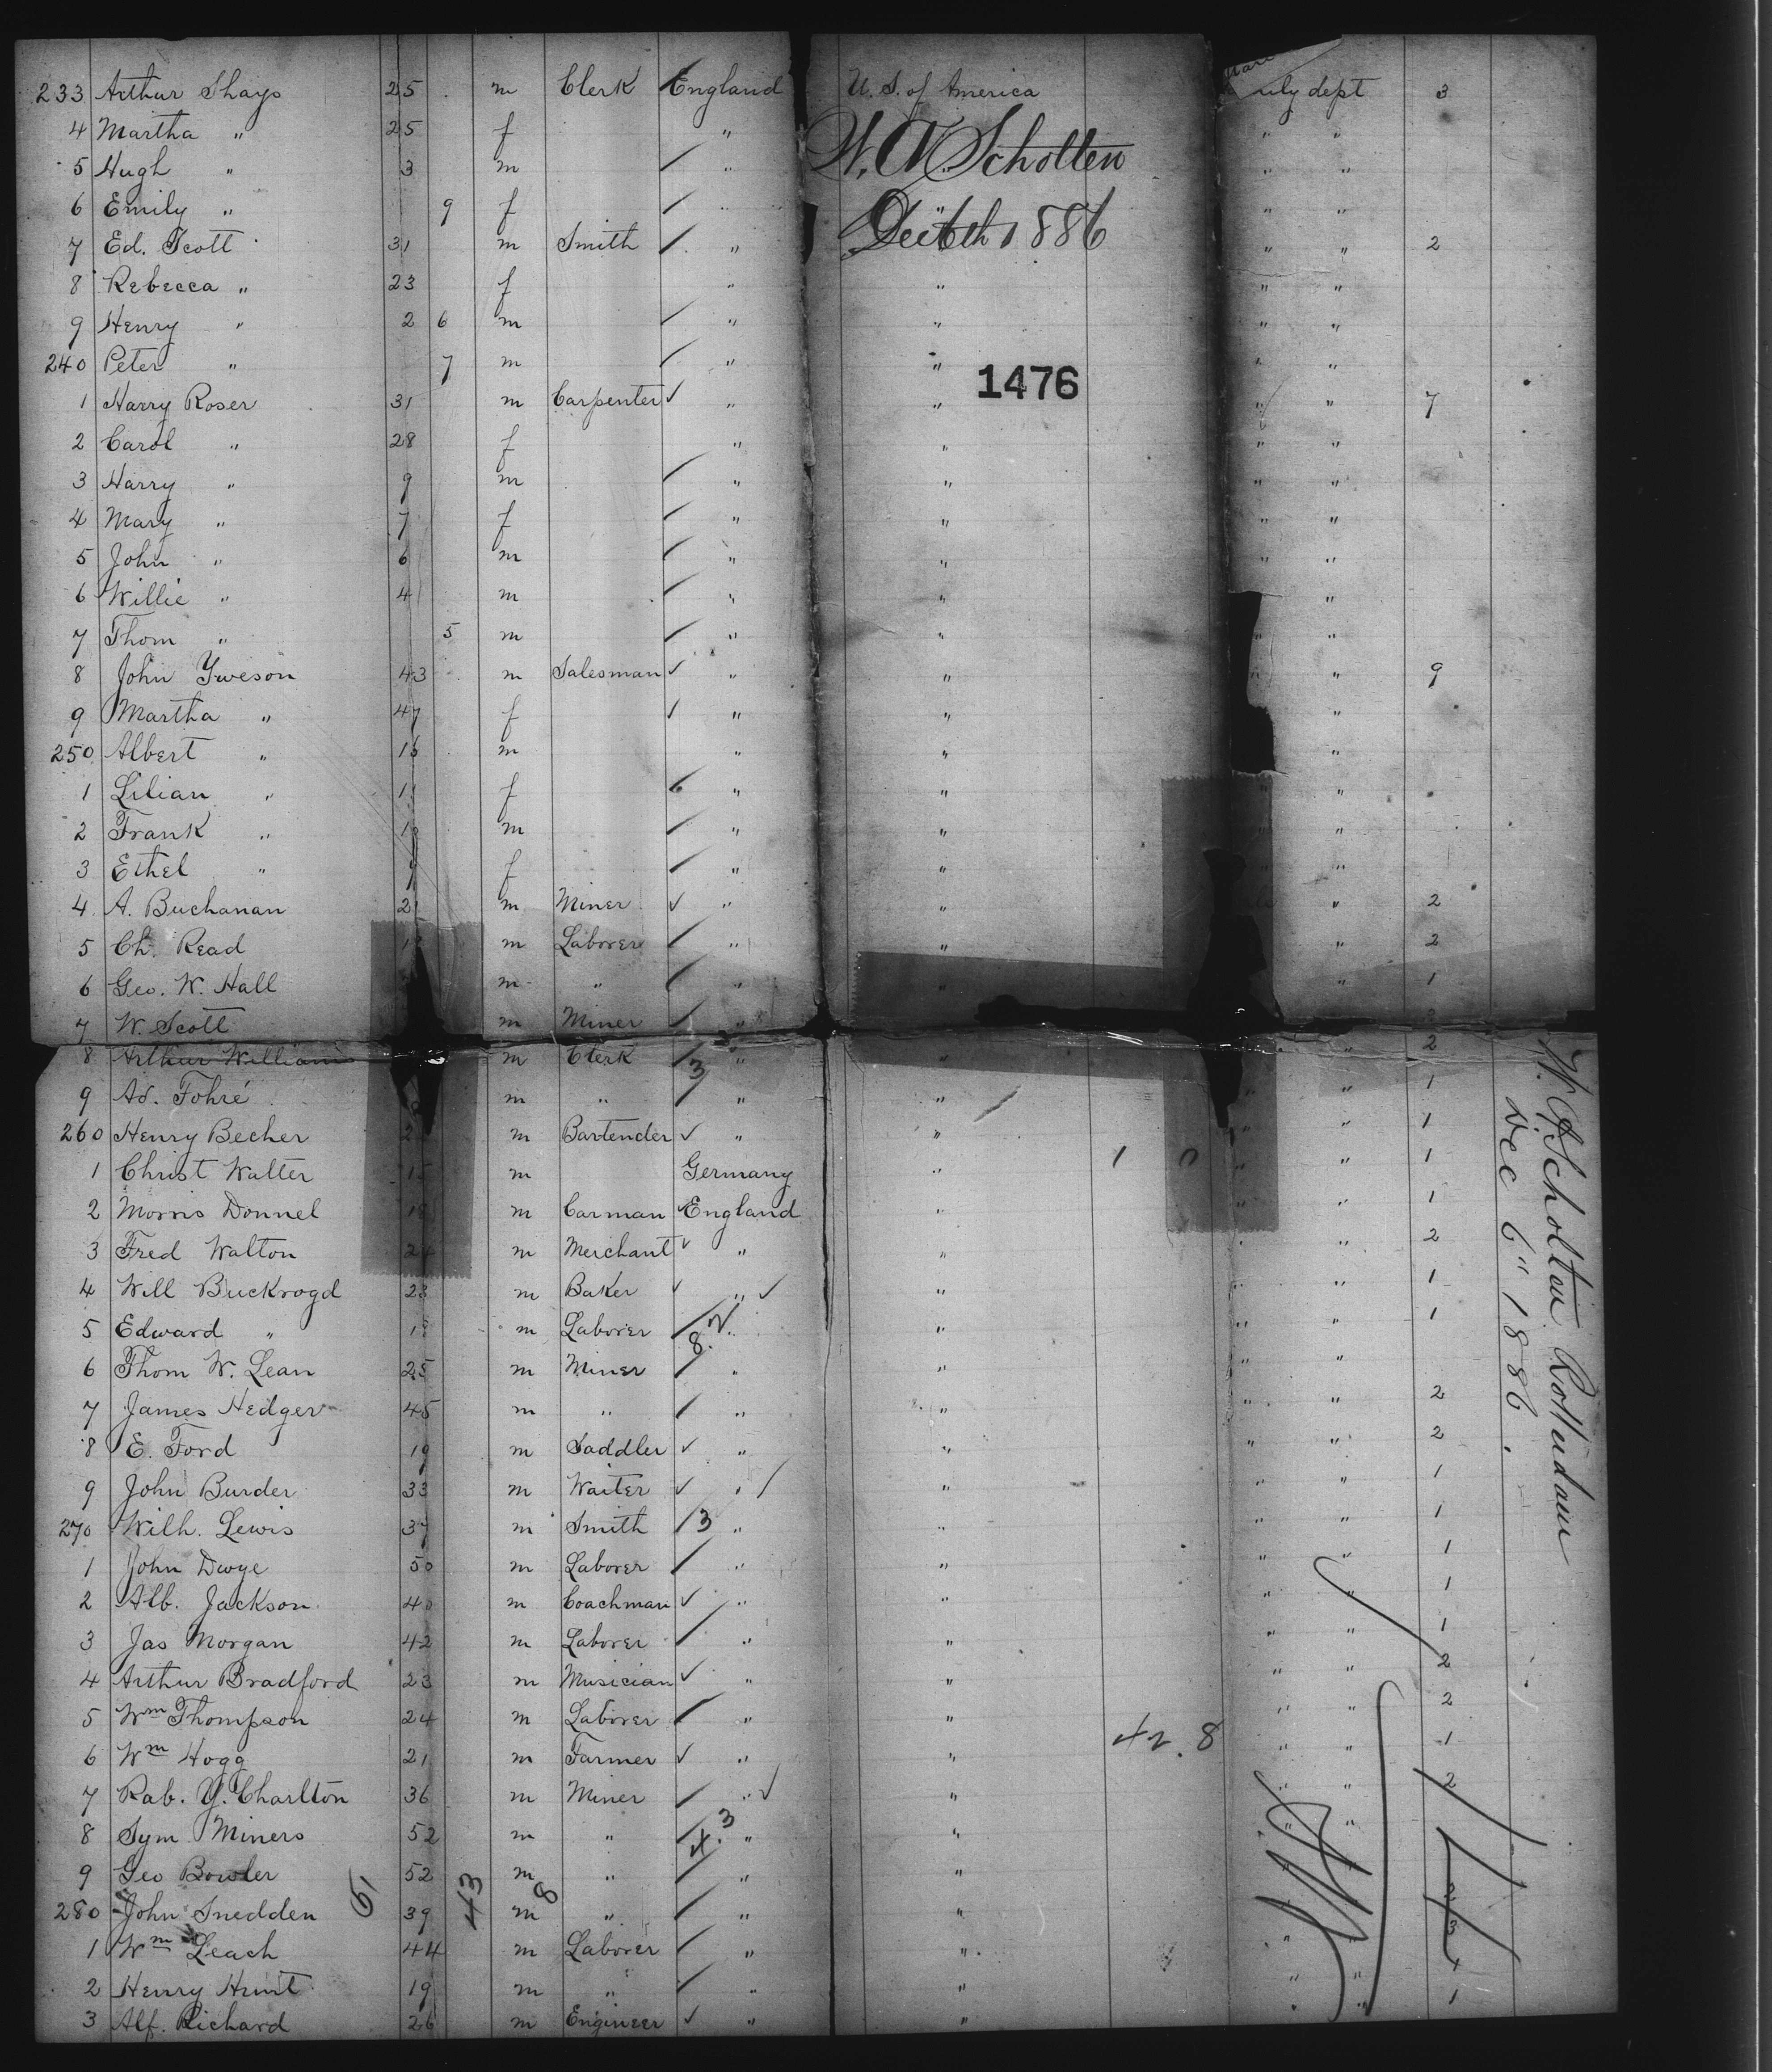 233 Arthur Shays 25 m Clerk England U. S. of America dept 3
4 Martha " 25 f " " "
W. A. Scholten
5 Hugh " 3 m " " "
6 Emily " 9 f " " " "
Dec 6th 1886
7 Ed. Scott 31 m Smith " " " 2
8 Rebecca " 23 f " " " "
9 Henry " 2 6 m " " " "
240 Peter " 7 m " " " "
1476
1 Harry Roser 31 m Carpenter " " " " 7
2 Carol " 28 f " " " "
3 Harry " 9 m " " " "
4 Mary " 7 f " " " "
5 John " 6 m " " " "
6 Willie " 4 m " " "
7 Thom " 5 m " " " "
8 John Yweson 43 m Salesman " " " " 9
9 Martha " 47 f " " "
250 Albert " 16 m " " "
1 Lilian " 11 f " " "
2 Frank " m " " "
3 Ethel " 9 f " " "
4 A. Buchanan 21 m Miner " " " 2
5 Ch. Read m Laborer " " " 2
6 Geo. W. Hall m " " " " 1
7 W. Scott m Miner "
8 Arthur Williams m Clerk 3 " " " 2
9 Ad. Fohré m " " " " " 1
260 Henry Becher m Bartender " " " " 1
1 Christ Walter 15 m Germany " 1 0 " " 1
2 Morris Donnel 18 m Carman England " " " 1
3 Fred Walton 24 m Merchant " " " " 2
4 Will Buckrogd 23 m Baker " " " " 1
5 Edward " 18 m Laborer " " " " 1
8.2
6 Thom W. Lean 25 m Miner " " " "
7 James Hedger 45 m " " " " " 2
8 E. Ford 19 m Saddler " " " " 2
9 John Burder 33 m Waiter " " " " 1
270 Wilh. Lewis 37 m Smith 3 " " " " 1
1 John Dwye 50 m Laborer " " " " 1
2 Alb. Jackson 40 m Coachman " " " " 1
3 Jas Morgan 42 m Laborer " " " " 1
4 Arthur Bradford 23 m Musician " " " " 2
5 Wm Thompson 24 m Laborer " " " " 2
42.8
6 Wm Hogg 21 m Farmer " " " " 1
7 Rab. Y. Charlton 36 m Miner " " " " 2
8 Sym Miners 52 m " " " " "
4.3
9 Geo Bowler 52 m " " " "
43 8
280 John Snedden 39 m " " "
1 Wm Leach 44 m Laborer " " "
2 Henry Hunt 19 m " " " " "
3 Alf. Richard 26 m Engineer " " " " 1
W. A. Scholten Rotterdam
Dec 6" 1886.